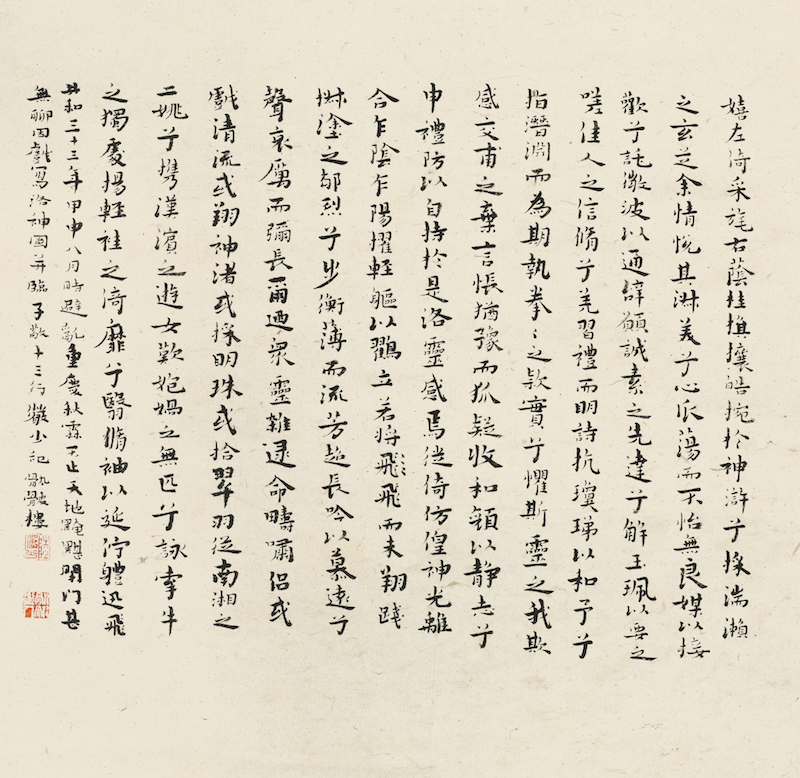 嬉左倚采旄右蔭桂旗攘皓捥於神滸兮採湍瀨
之玄芝余情悅其淋美兮心振蕩而不怡無良媒以接
歡兮託微波以通辭願誠素之先達兮解玉珮以要之
嗟佳人之信脩兮羌習禮而明詩抗瓊珶以和予兮
指潛淵而為期執拳〻之欵實兮懼斯靈之我欺
感交甫之棄言悵猶豫而狐疑收和顏以靜志兮
申禮防以自持於是洛靈感焉徙倚仿偟神光離
合乍陰乍陽擢輕軀以鸖立若將飛飛而未翔踐
椒塗之郁烈兮步衡薄而流芳超長吟以慕遠兮
聲哀厲而彌長爾迺眾靈雜遝命疇嘯侶或
戲清流或翔神渚或採明珠或拾翠羽從南湘之
二姚兮携漢濱之遊女歎匏媧之無匹兮詠牽牛
之獨處揚輕袿之倚靡兮翳脩袖以延佇體迅飛
共和三十三年甲申八月時避亂重慶秋霖不止天地閉門甚
無聊因戲寫洛神圖并臨子敬十三行小記骩骳樓